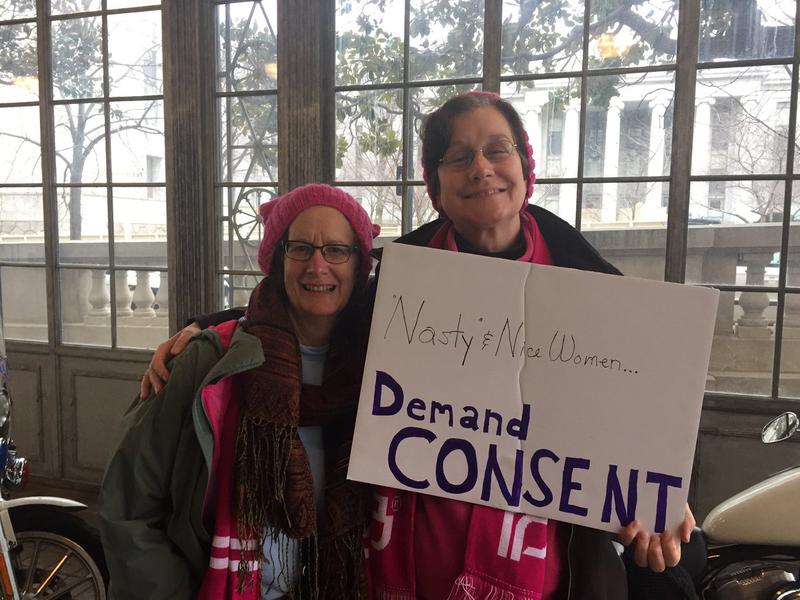 "Nasty" & Nice Women...
Demand
CONSENT